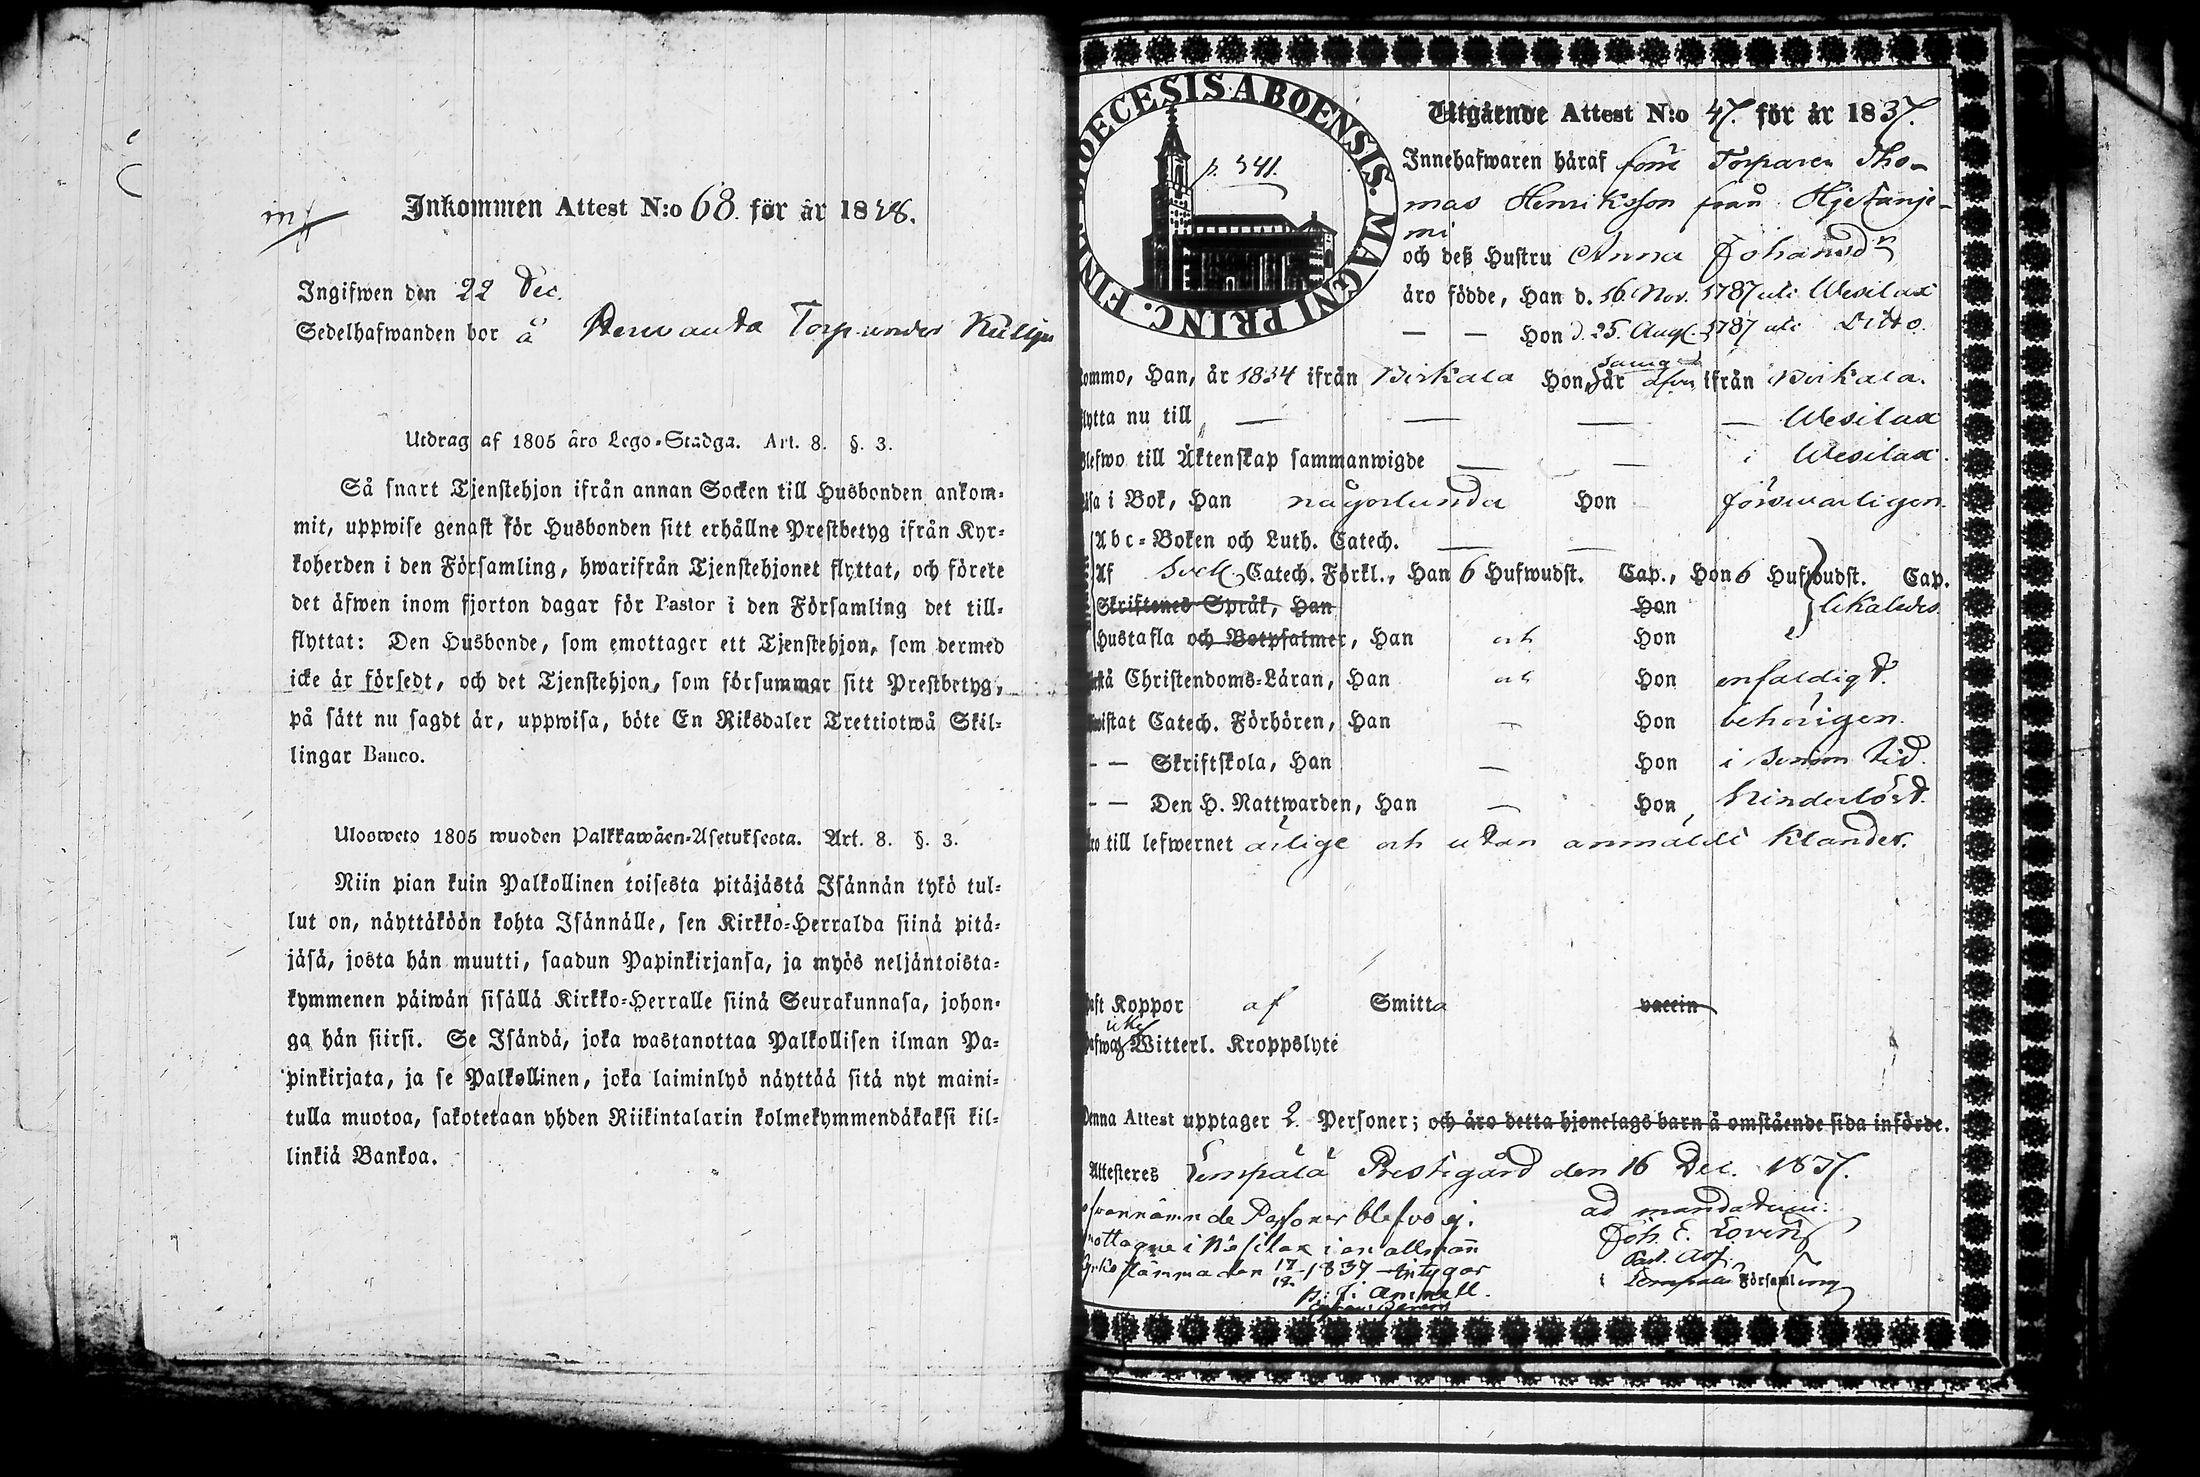 Inkommen Attest N:o 68. för år 1828.
Ingifwen den 22 Dec.
Sedelhafwanden bor å Torp under
Utdrag af 1805 åro Lego-Stadga. Art. 8. §. 3.
Så snart Tjenstehjon ifrån annan Socken till Husbonden ankom-
mit, uppwise genast för Husbonden sitt erhållne Prestbetyg ifrån Kyr-
koherden i den Församling, hwarifrån Tjenstehjonet flyttat, och förete
det äfwen inom fjorton dagar för Pastor i den Församling det till-
flyttat: Den Husbonde, som emottager ett Tjenstehjon, som dermed
icke är försedt, och det Tjenstehjon, som försummar sitt Prestbetyg,
på sätt nu sagdt är, uppwisa, böte En Riksdaler Trettiotwå Skil-
lingar Banco.
Ulosweto 1805 wuoden Palkkawäen-Asetuksesta. Art. 8. §. 3.
Niin pian kuin Palkollinen toisesta pitäjästä Isännän tykö tul-
lut on, näyttäköön kohta Isännälle, sen Kirkko-Herralda siinä pitä-
jäsä, josta hän muutti, saadun Papinkirjansa, ja myös neljäntoista-
kymmenen päiwän sisällä Kirkko-Herralle siinä Seurakunnasa, johon-
ga hän siirsi. Se Isändä, joka wastanottaa Palkollisen ilman Pa-
pinkirjata, ja se Palkollinen, joka laiminlyö näyttää sitä nyt maini-
tulla muotoa, sakotetaan yhden Riikintalarin kolmekymmendäkaksi kil-
linkiä Bankoa.
DIOECESIS ABOENSIS. MAGNI PRINC. FINL.
p. 541.
Utgående Attest N:o 47. för år 1837.
Innehafwaren häraf förre Torparen Tho-
mas Henriksson från Hjetanje-
mi
och deß Hustru Anna Johansdr
äro födde, Han d. 16 Nov. 1787 uti Wesilax
— — Hon d. 25 Aug. 1787 uti Ditto.
kommo, Han, år 1834 ifrån Birkala Hon, år äfven ifrån Birkala.
flytta nu till — — — — Wesilax
blefwo till Äktenskap sammanwigde — — i Wesilax.
läsa i Bok, Han någorlunda Hon förswarligen.
Abc-Boken och Luth. Catech. — —
Af Catech. Förkl., Han 6 Hufwudst. Cap., Hon 6 Hufwudst. Cap.
Skriftenes Språk, Han Hon likaledes
Hustafla och Botpsalmer, Han och Hon
förstå Christendoms-Läran, Han och Hon enfaldigt.
bewistat Catech. Förhören, Han — Hon behörigen.
— — Skriftskola, Han — Hon i sinom tid.
— — Den H. Nattwarden, Han — Hon hinderlöst.
äro till lefwernet ärlige och utan anmäldt klander.
haft Koppor af Smitta vaccin
hafwa icke Witterl. Kroppslyte
Denna Attest upptager 2 Personer; och äro detta hjonelags barn å omstående sida införde.
Attesteres Lempälä Prestegård den 16 Dec. 1837.
ad mandatum:
Joh. E.
Past. Adj.
i Lempälä Församling
ofwannämnde Personer blefvo ej
mottagne i Wesilax i en allmän
Kyrkostämma den 17/12 1837 intygar